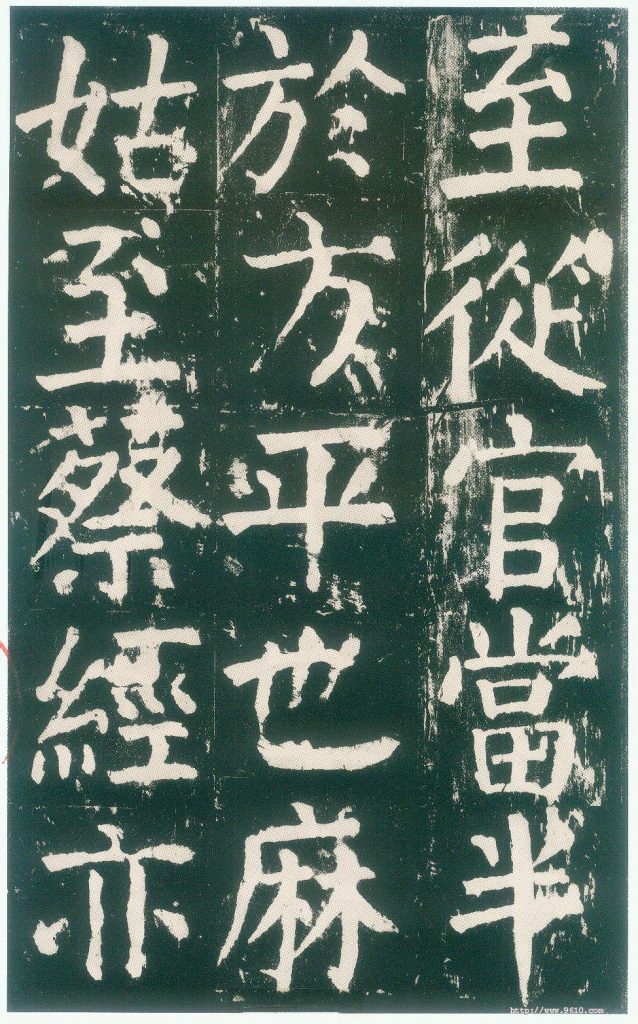 至從官當半
於方平也麻
姑至蔡經亦
http://www.9610.com